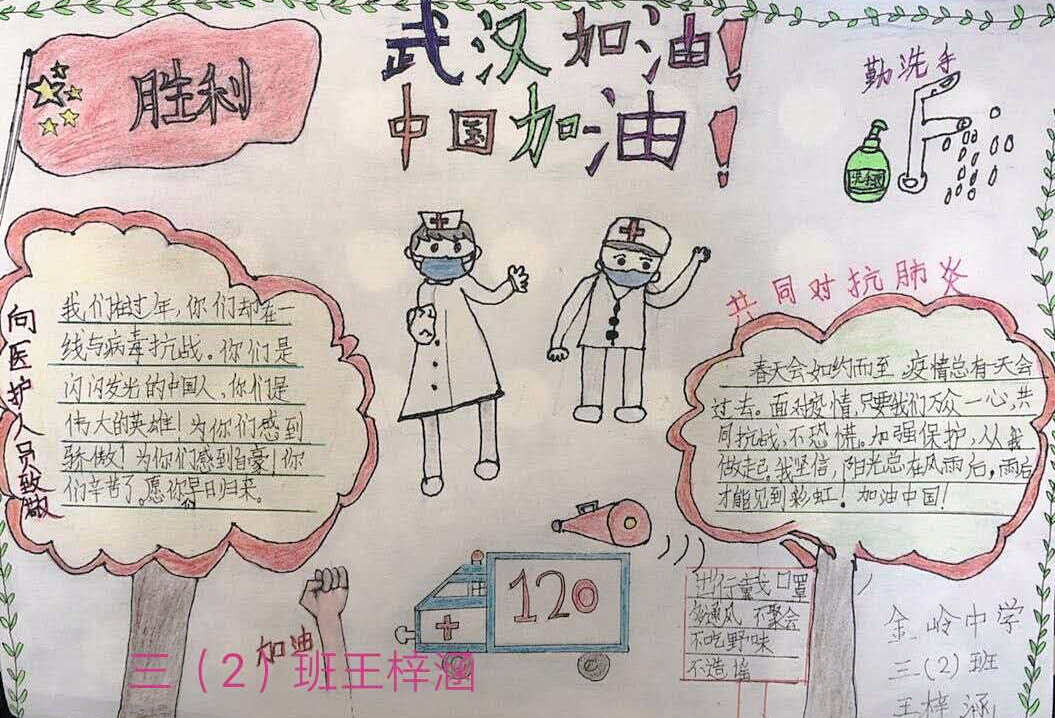 胜利
武汉加油!
中国加油!
勤洗手
洗手液
向医护人员致敬
我们在过年,你们却在一
线与病毒抗战。你们是
闪闪发光的中国人,你们是
伟大的英雄!为你们感到
骄傲!为你们感到自豪!你
们辛苦了。愿你们早日归来。
共同对抗肺炎
春天会如约而至,疫情总有一天会
过去。面对疫情,只要我们万众一心,共
同抗战,不恐慌。加强保护,从我
做起。我坚信,阳光总在风雨后,雨后
才能见到彩虹!加油中国!
120
加油
出行戴口罩
通风 不聚会
不吃野味
不造谣
金岭中学
三(2)班
王梓涵
三(2)班王梓涵